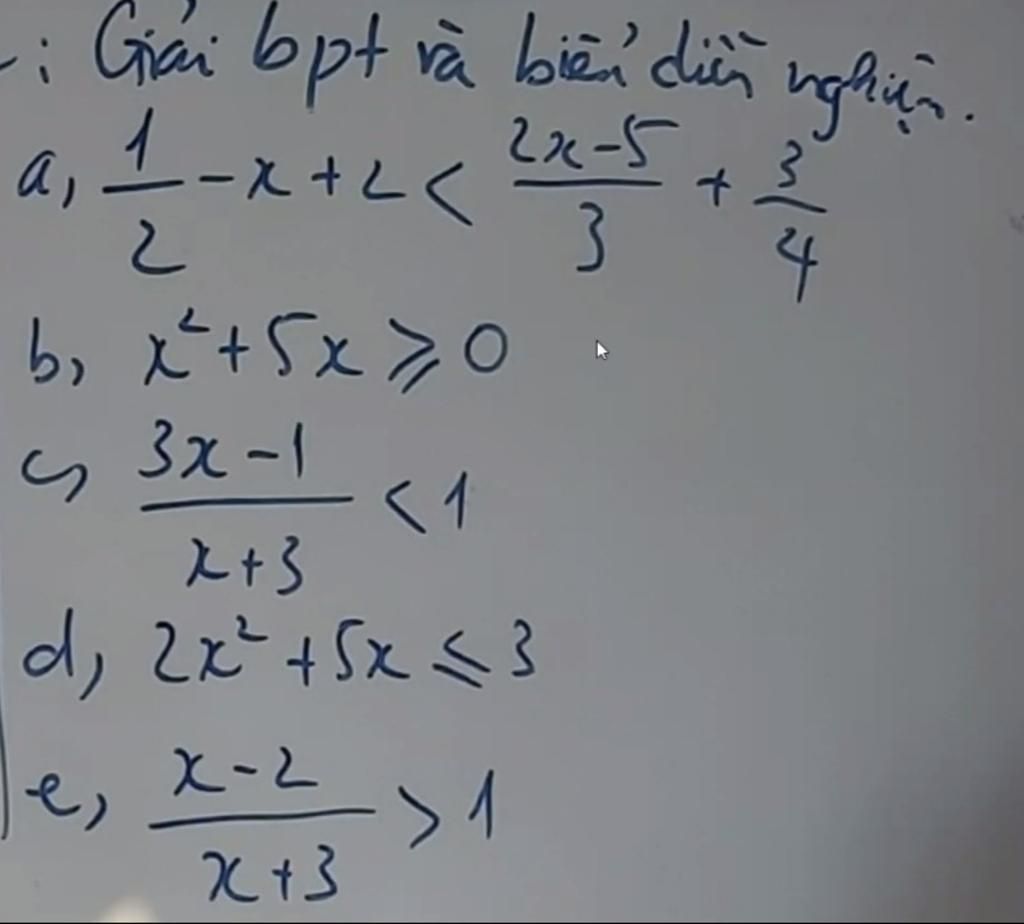 : Giải bpt và biểu diễn nghiệm.
a, 1/2 - x + 2 < (2x-5)/3 + 3/4
b, x² + 5x ⩾ 0
c, (3x-1)/(x+3) < 1
d, 2x² + 5x ⩽ 3
e, (x-2)/(x+3) > 1